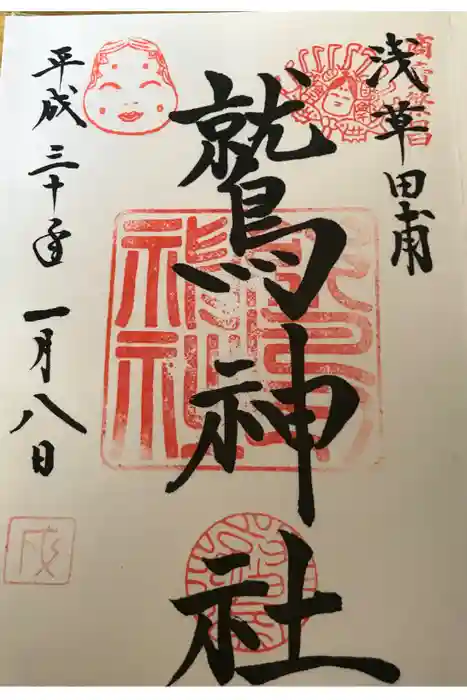 浅草田甫
鷲神社
平成三十年
一月八日
戌